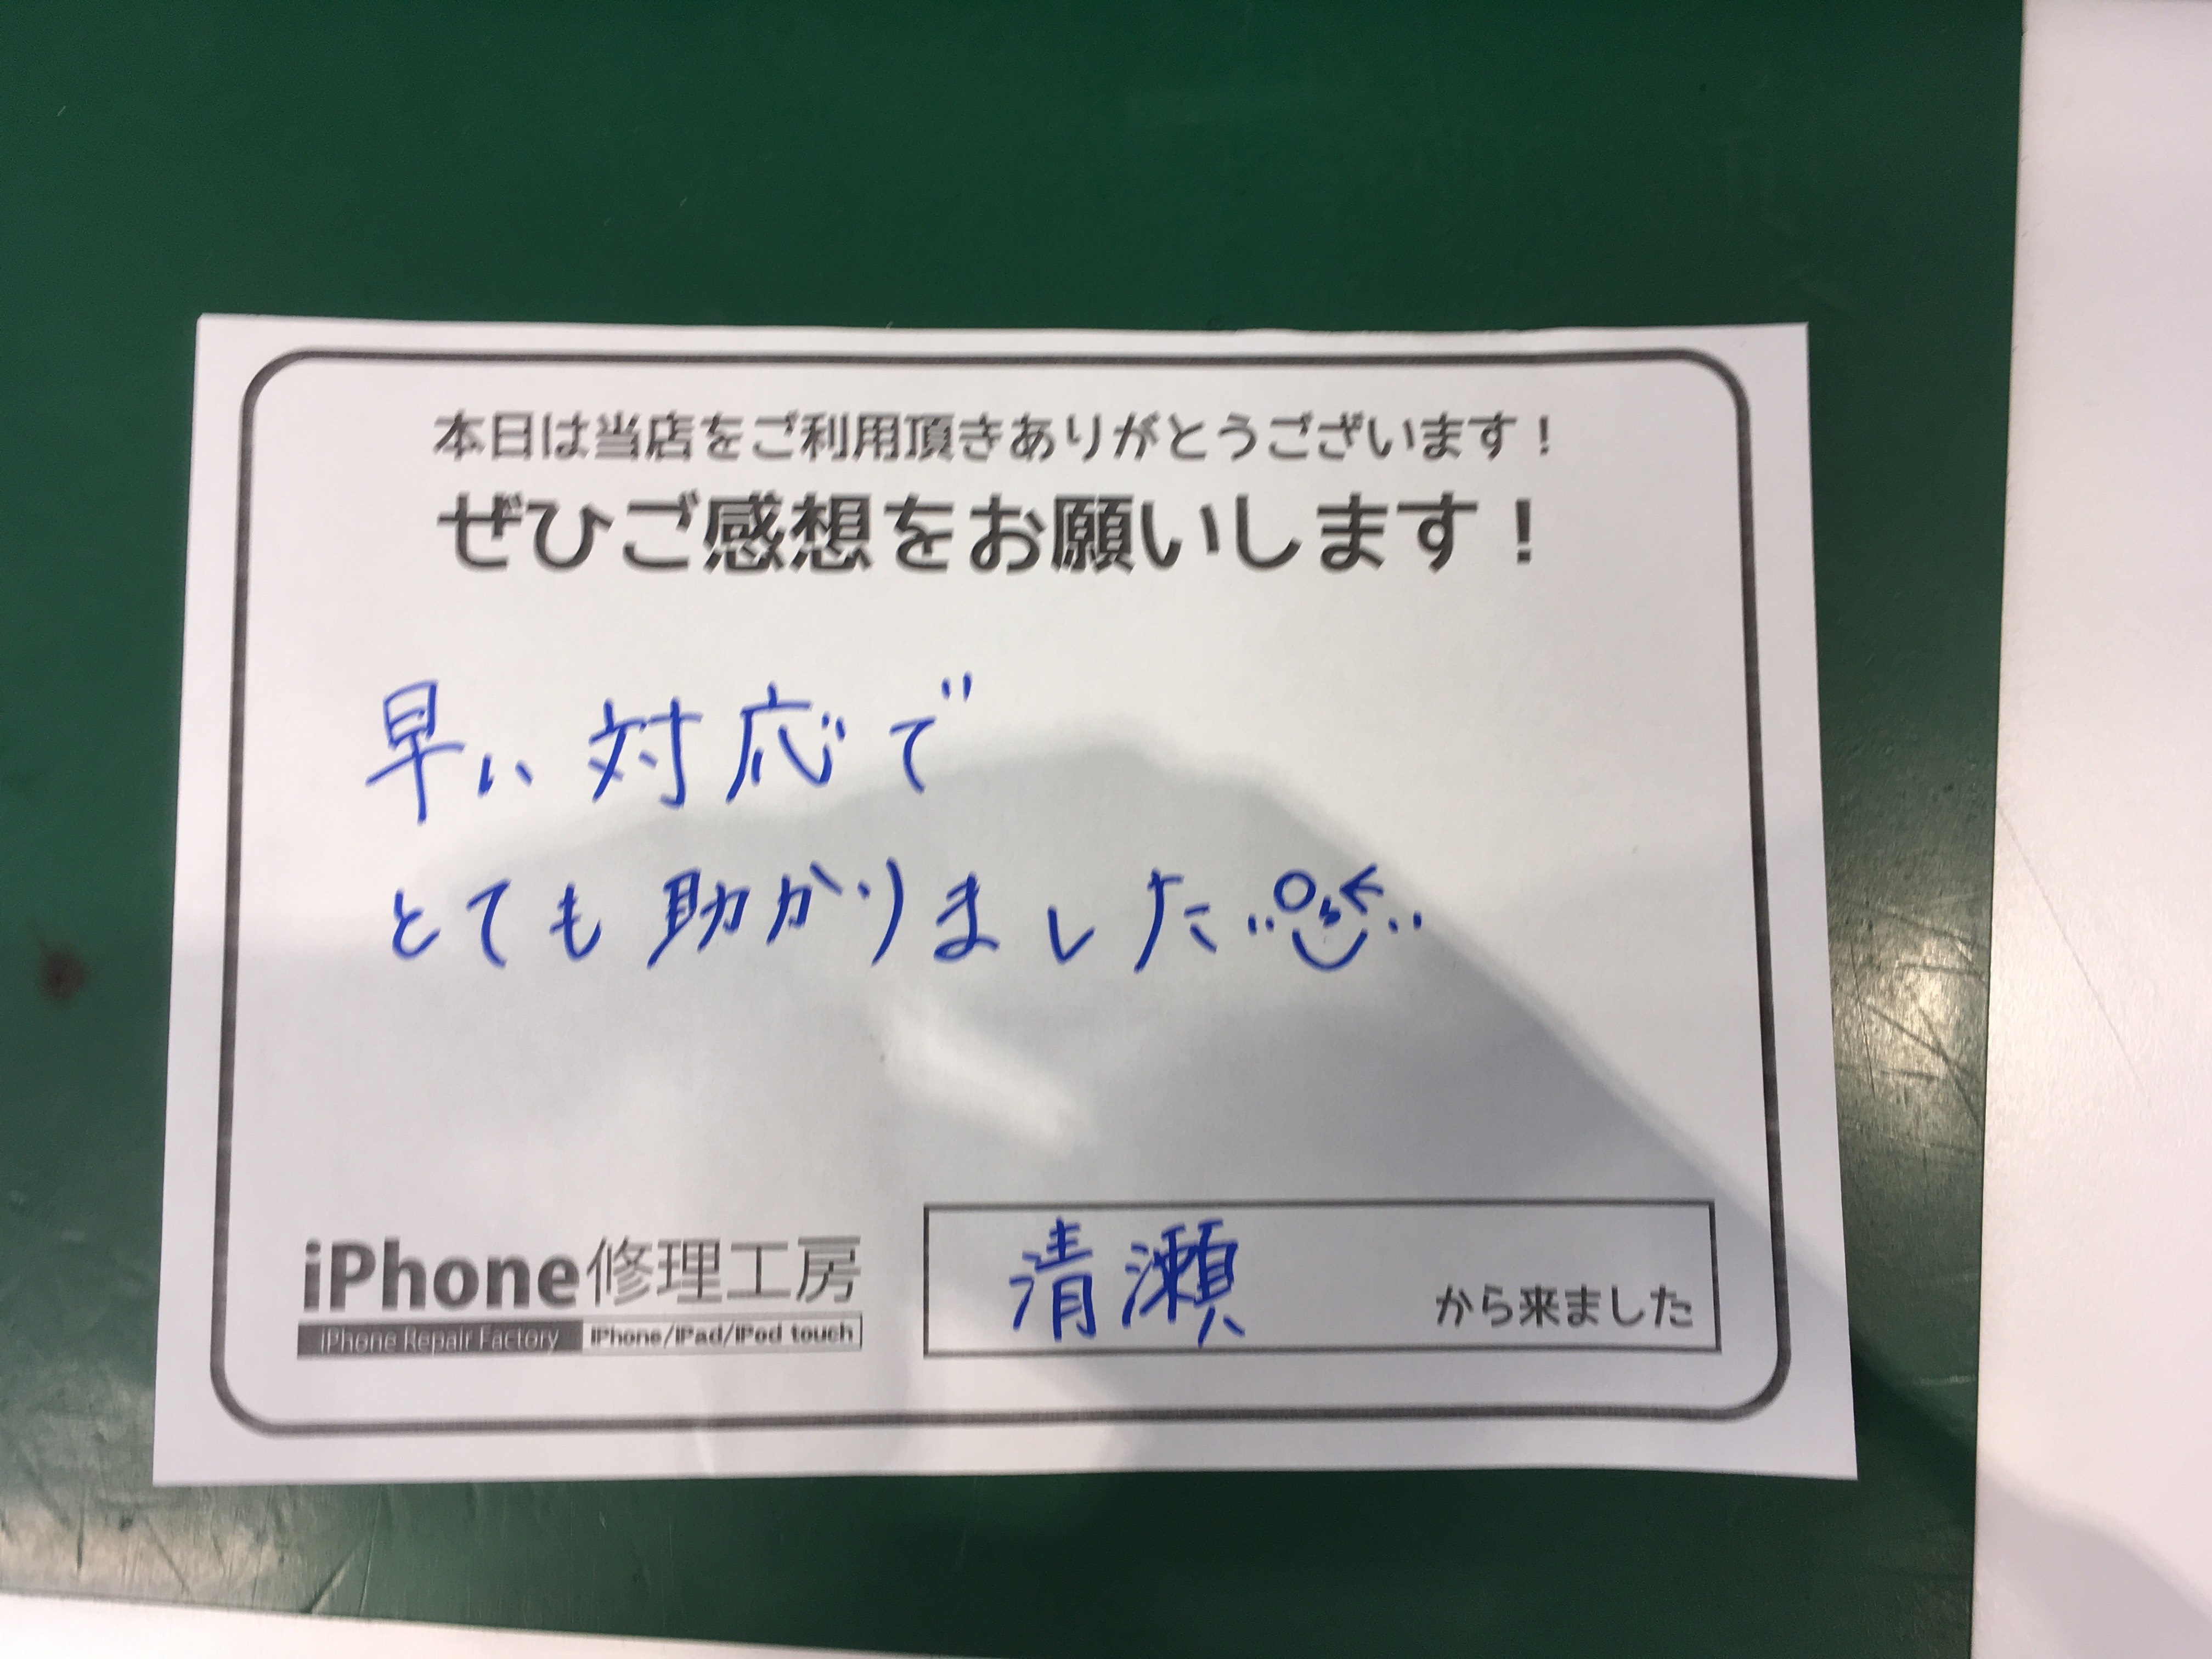 本日は当店をご利用頂きありがとうございます！
ぜひご感想をお願いします！
早い対応で
とても助かりました
iPhone修理工房
iPhone Repair Factory iPhone/iPad/iPod touch
清瀬 から来ました